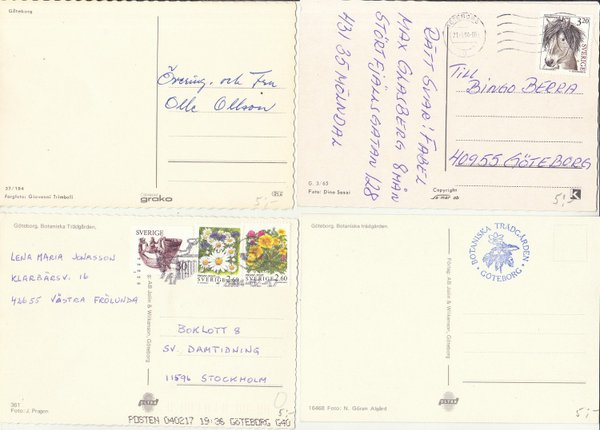 Göteborg
Övering. och Fru
Olle Ollson
37/184
Färgfoto: Giovanni Trimboli
grako
5:-
GÖTEBORG
3,20
SVERIGE
TILL
BINGO BERRA
40955 GÖTEBORG
RÄTT SVAR: FABEL
MAX GRASBERG 8 MÅN
STORFJÄLLSGATAN 128
431 35 MÖLNDAL
G. 3/65
Foto: Dino Sassi
Copyright
5:-
Göteborg. Botaniska Trädgården.
LENA MARIA JONASSON
KLARBÄRSV. 16
42655 VÄSTRA FRÖLUNDA
SVERIGE
30
SVERIGE 2.60
SVERIGE 2.60
AB Jolin & Wilkenson, Göteborg
BOKLOTT 8
SV. DAMTIDNING
11596 STOCKHOLM
361
Foto: J. Prajsn
0
5:-
POSTEN 040217 19:36 GÖTEBORG G40
Göteborg. Botaniska Trädgården.
BOTANISKA TRÄDGÅRDEN
GÖTEBORG
Förlag: AB Jolin & Wilkenson, Göteborg
16468 Foto: N. Göran Algård
5:-